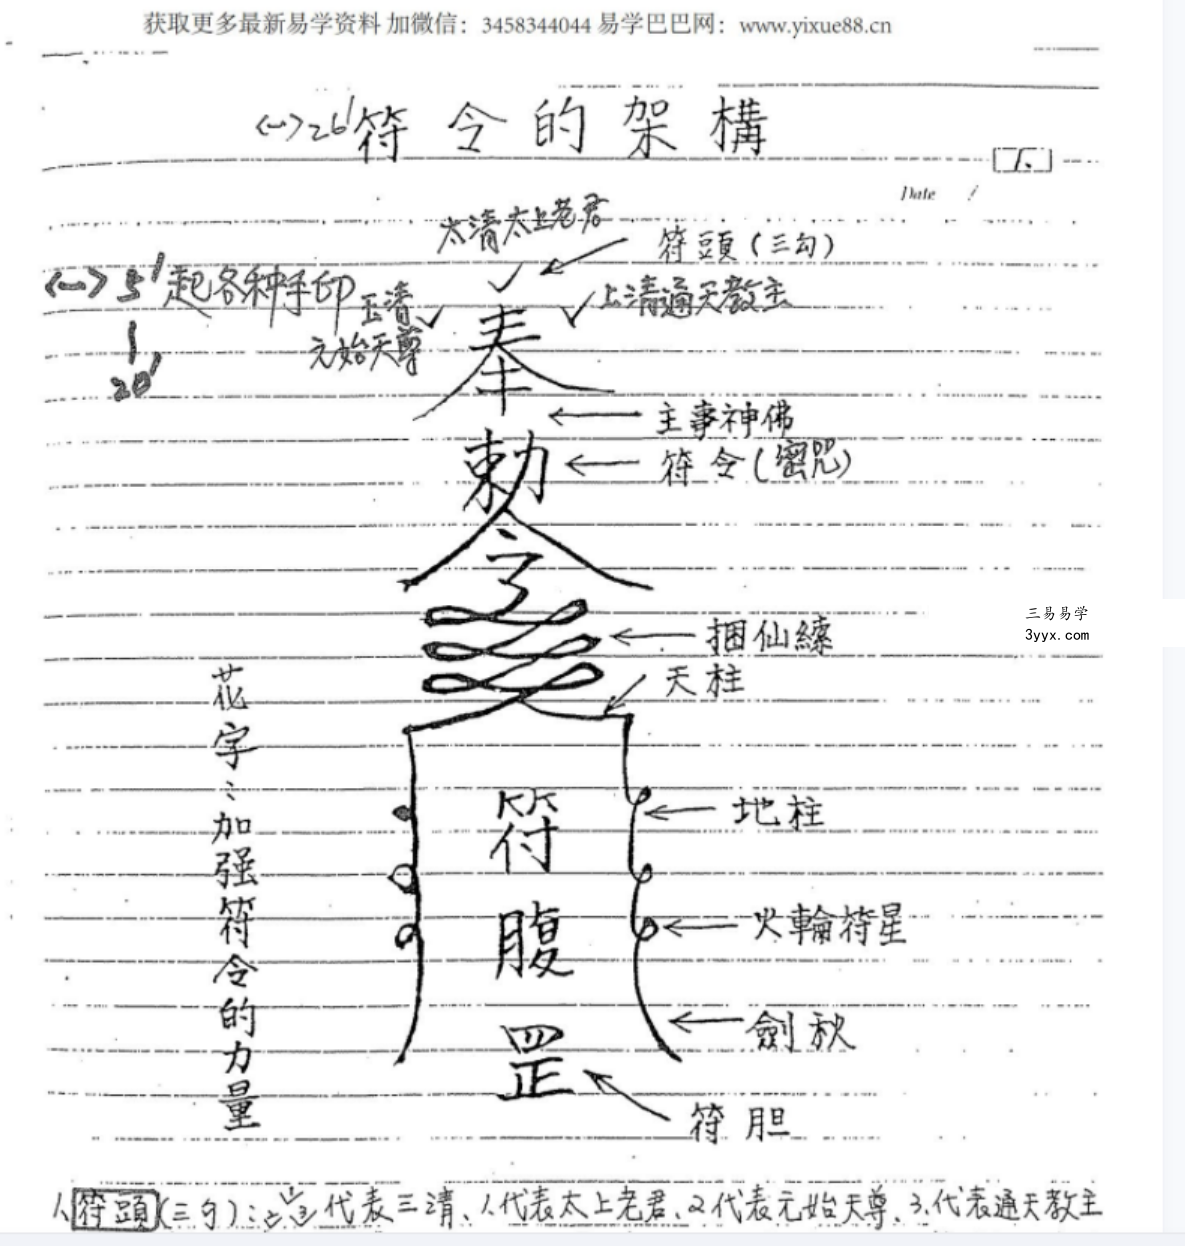 获取更多最新易学资料 加微信：3458344044 易学巴巴网：www.yixue88.cn
<一>26' 符令的架構
1.
Date /
太清太上老君
符頭（三勾）
<一>5' 起各种手印
玉清
元始天尊
上清通天教主
20'
奉
主事神佛
勅
符令（密咒）
令
三易易学
3yyx.com
捆仙繩
天柱
花字：加强符令的力量
地柱
符
火輪符星
腹
劍秋
罡
符胆
1.符頭（三勾）：代表三清、1.代表太上老君、2.代表元始天尊、3.代表通天教主